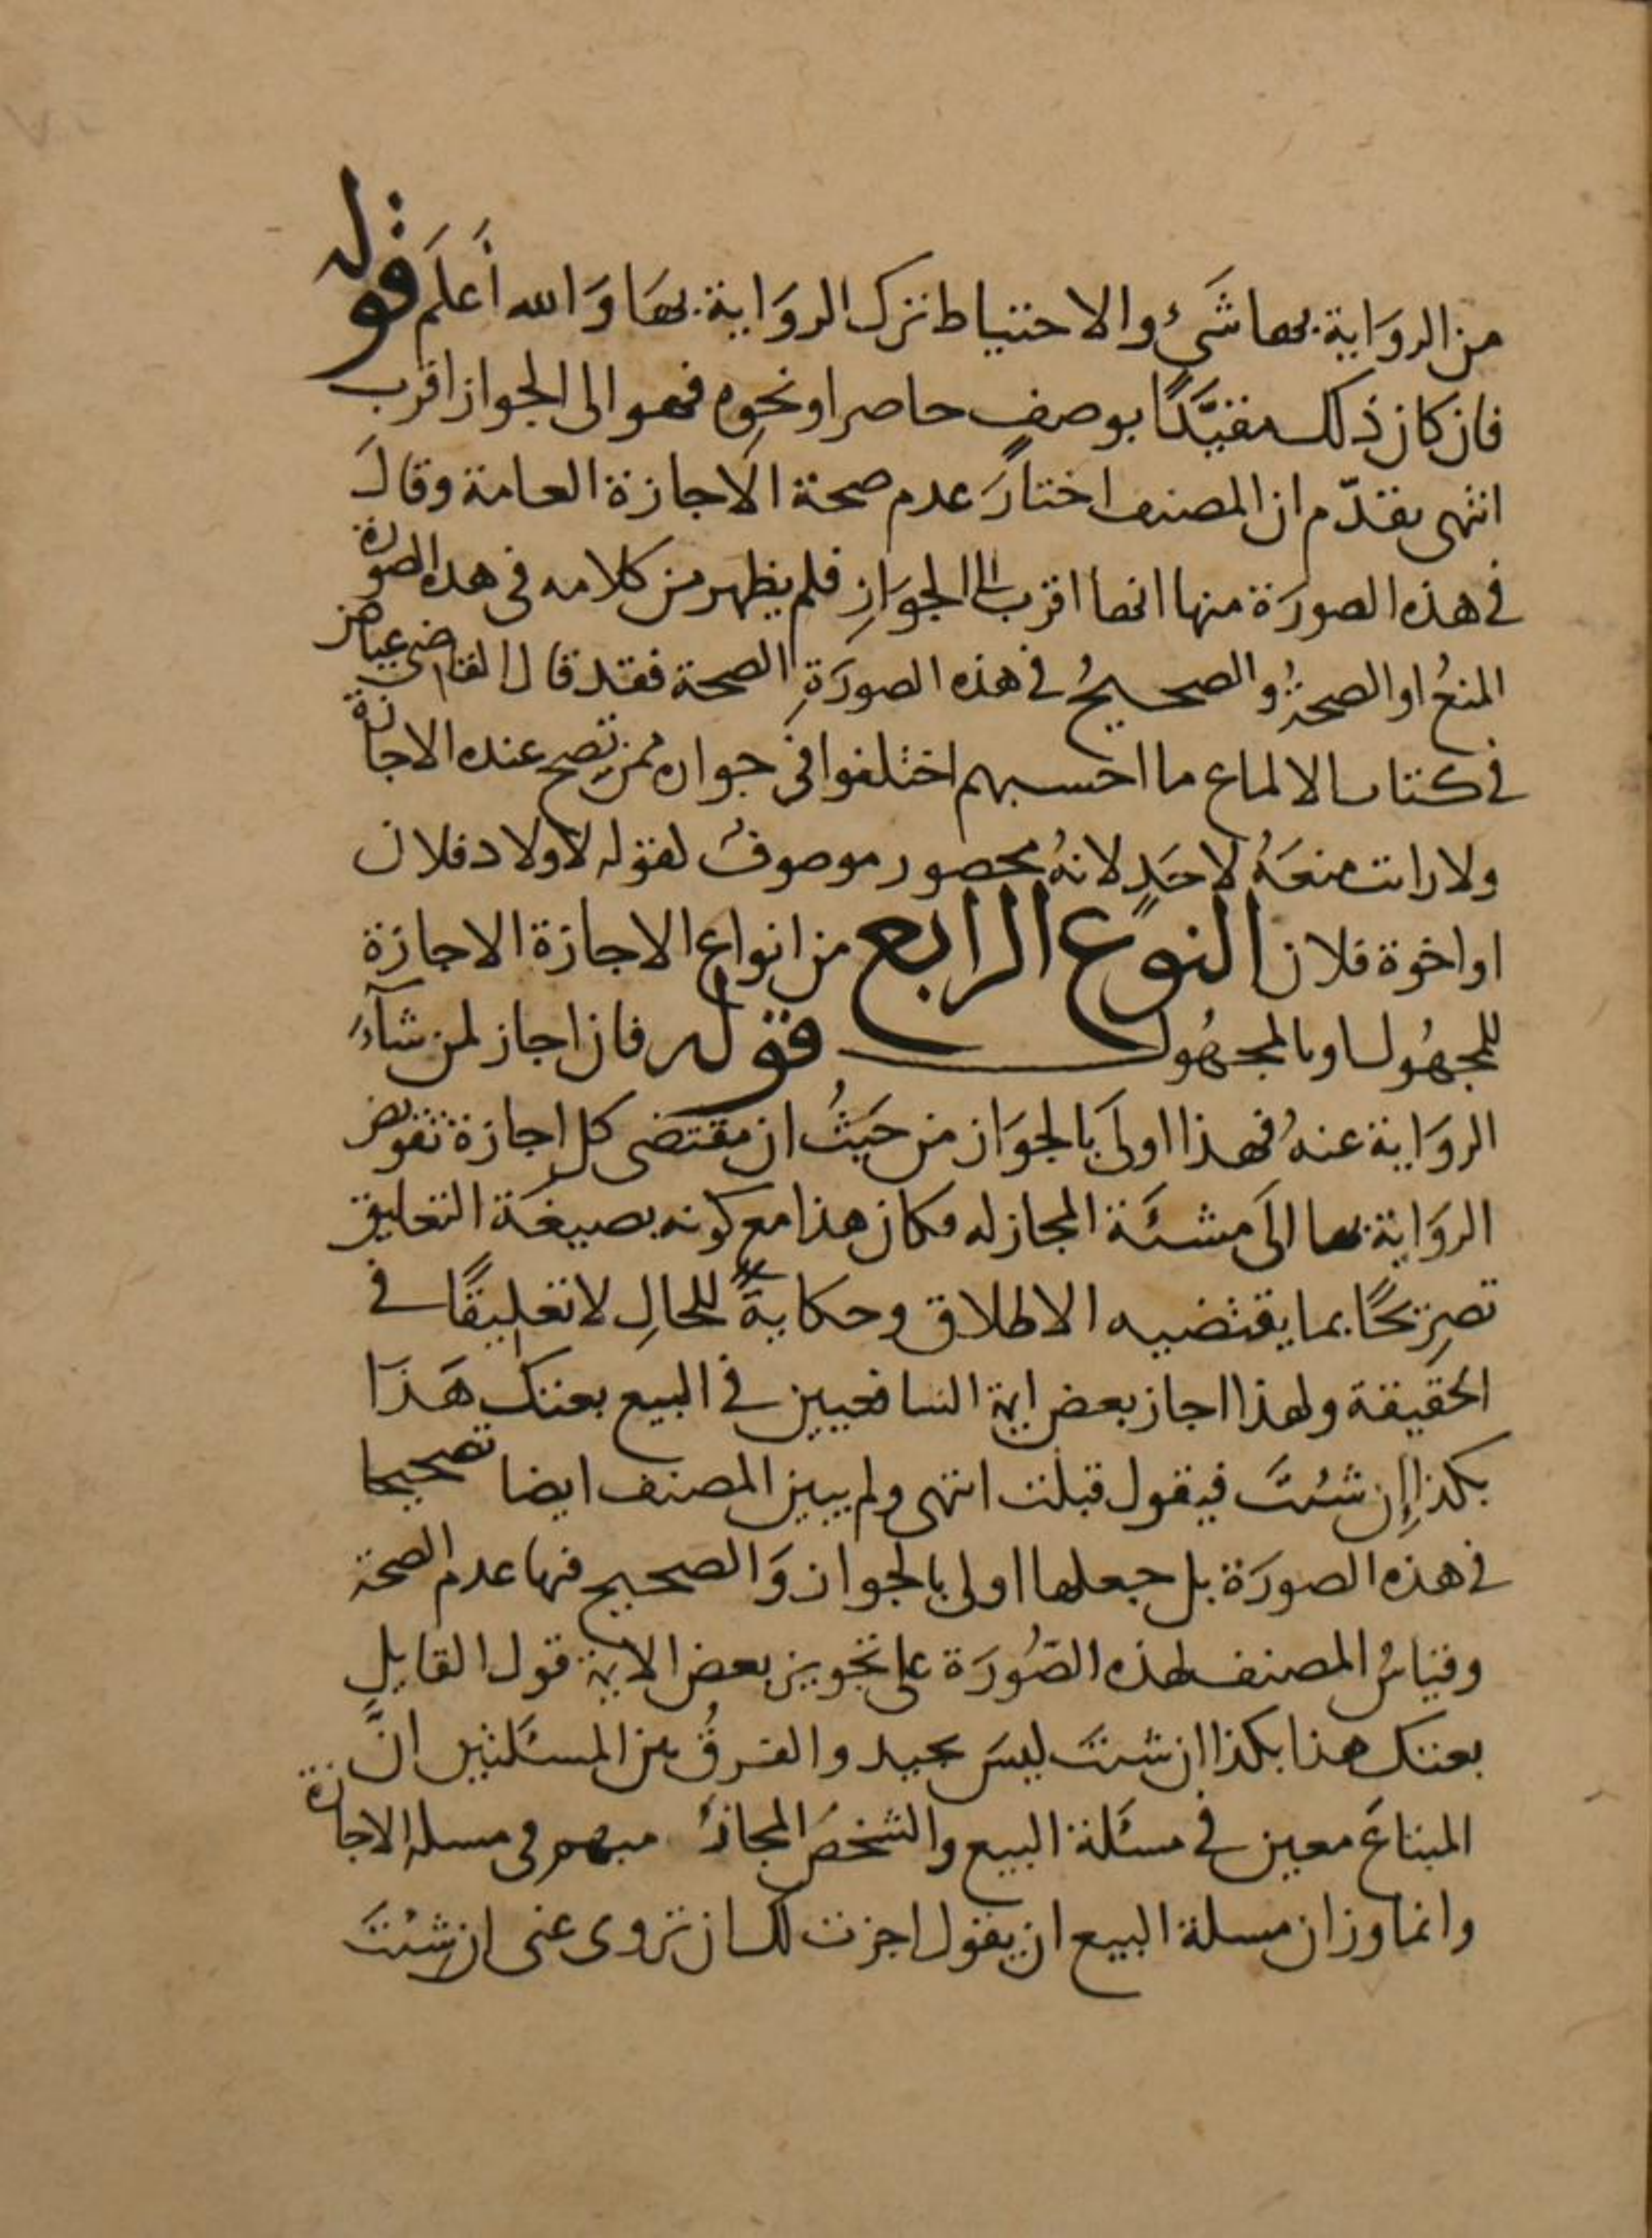 من الروَاية بها شَيء والاحتياط ترك الروَاية بهَا وَالله أَعلَم قوله
فان كان ذلك مقيَّدًا بوصفٍ حاصر او نحوِه فهو الى الجواز اقرب
انتهى تقدّم ان المصنف اختارَ عدم صحة الاجازة العامة وقالَ
في هذه الصورَة منها انها اقرب الى الجوَازِ فلم يظهر من كلامه في هذه الصورة
المنعُ او الصحةُ والصحيحُ في هذه الصورَةِ الصحة فقد قال القاضى عياض
في كتاب الالماع ما احسبهم اختلفوا في جوازه ممن تصح عنده الاجازة
ولا رايت منعَهُ لاحَدٍ لانهُ محصور موصوفٌ لقوله لاولاد فلان
او اخوة فلان النوع الرابع من انواع الاجازة الاجازة
للمجهُول او بالمجهُول قوله فان اجاز لمن شآءَ
الروَاية عنهُ فهذا اولَى بالجوَاز من حَيثُ ان مقتضى كل اجازة تفويض
الروَاية بها الَى مشئَة المجاز له فكان هذا مع كونه بصيغَة التعليق
تصرِيحًا بما يقتضيه الاطلاق وحكايةً للحالِ لا تعليقًا في
الحقيقة ولهذا اجاز بعض ايمة الشافعيين في البيع بعتك هَذَا
بكذا إِن شئتَ فيقول قبلت انتهى ولم يبين المصنف ايضا تصحيحا
في هذه الصورَة بل جعلها اولى بالجواز وَالصحيح فيها عدم الصحة
وقياسُ المصنف لهذه الصُورَة على تجويز بعض الايمة قول القايلِ
بعتك هذا بكذا ان شئتَ ليسَ بجيد والفرقُ بين المسئلتين انَّ
المبتاعَ معين في مسئَلة البيع والشخصَ المجازُ مبهم في مسلة الاجازة
وانما وزان مسلة البيع ان يقول اجزت لك ان تروى عنى ان شئتَ